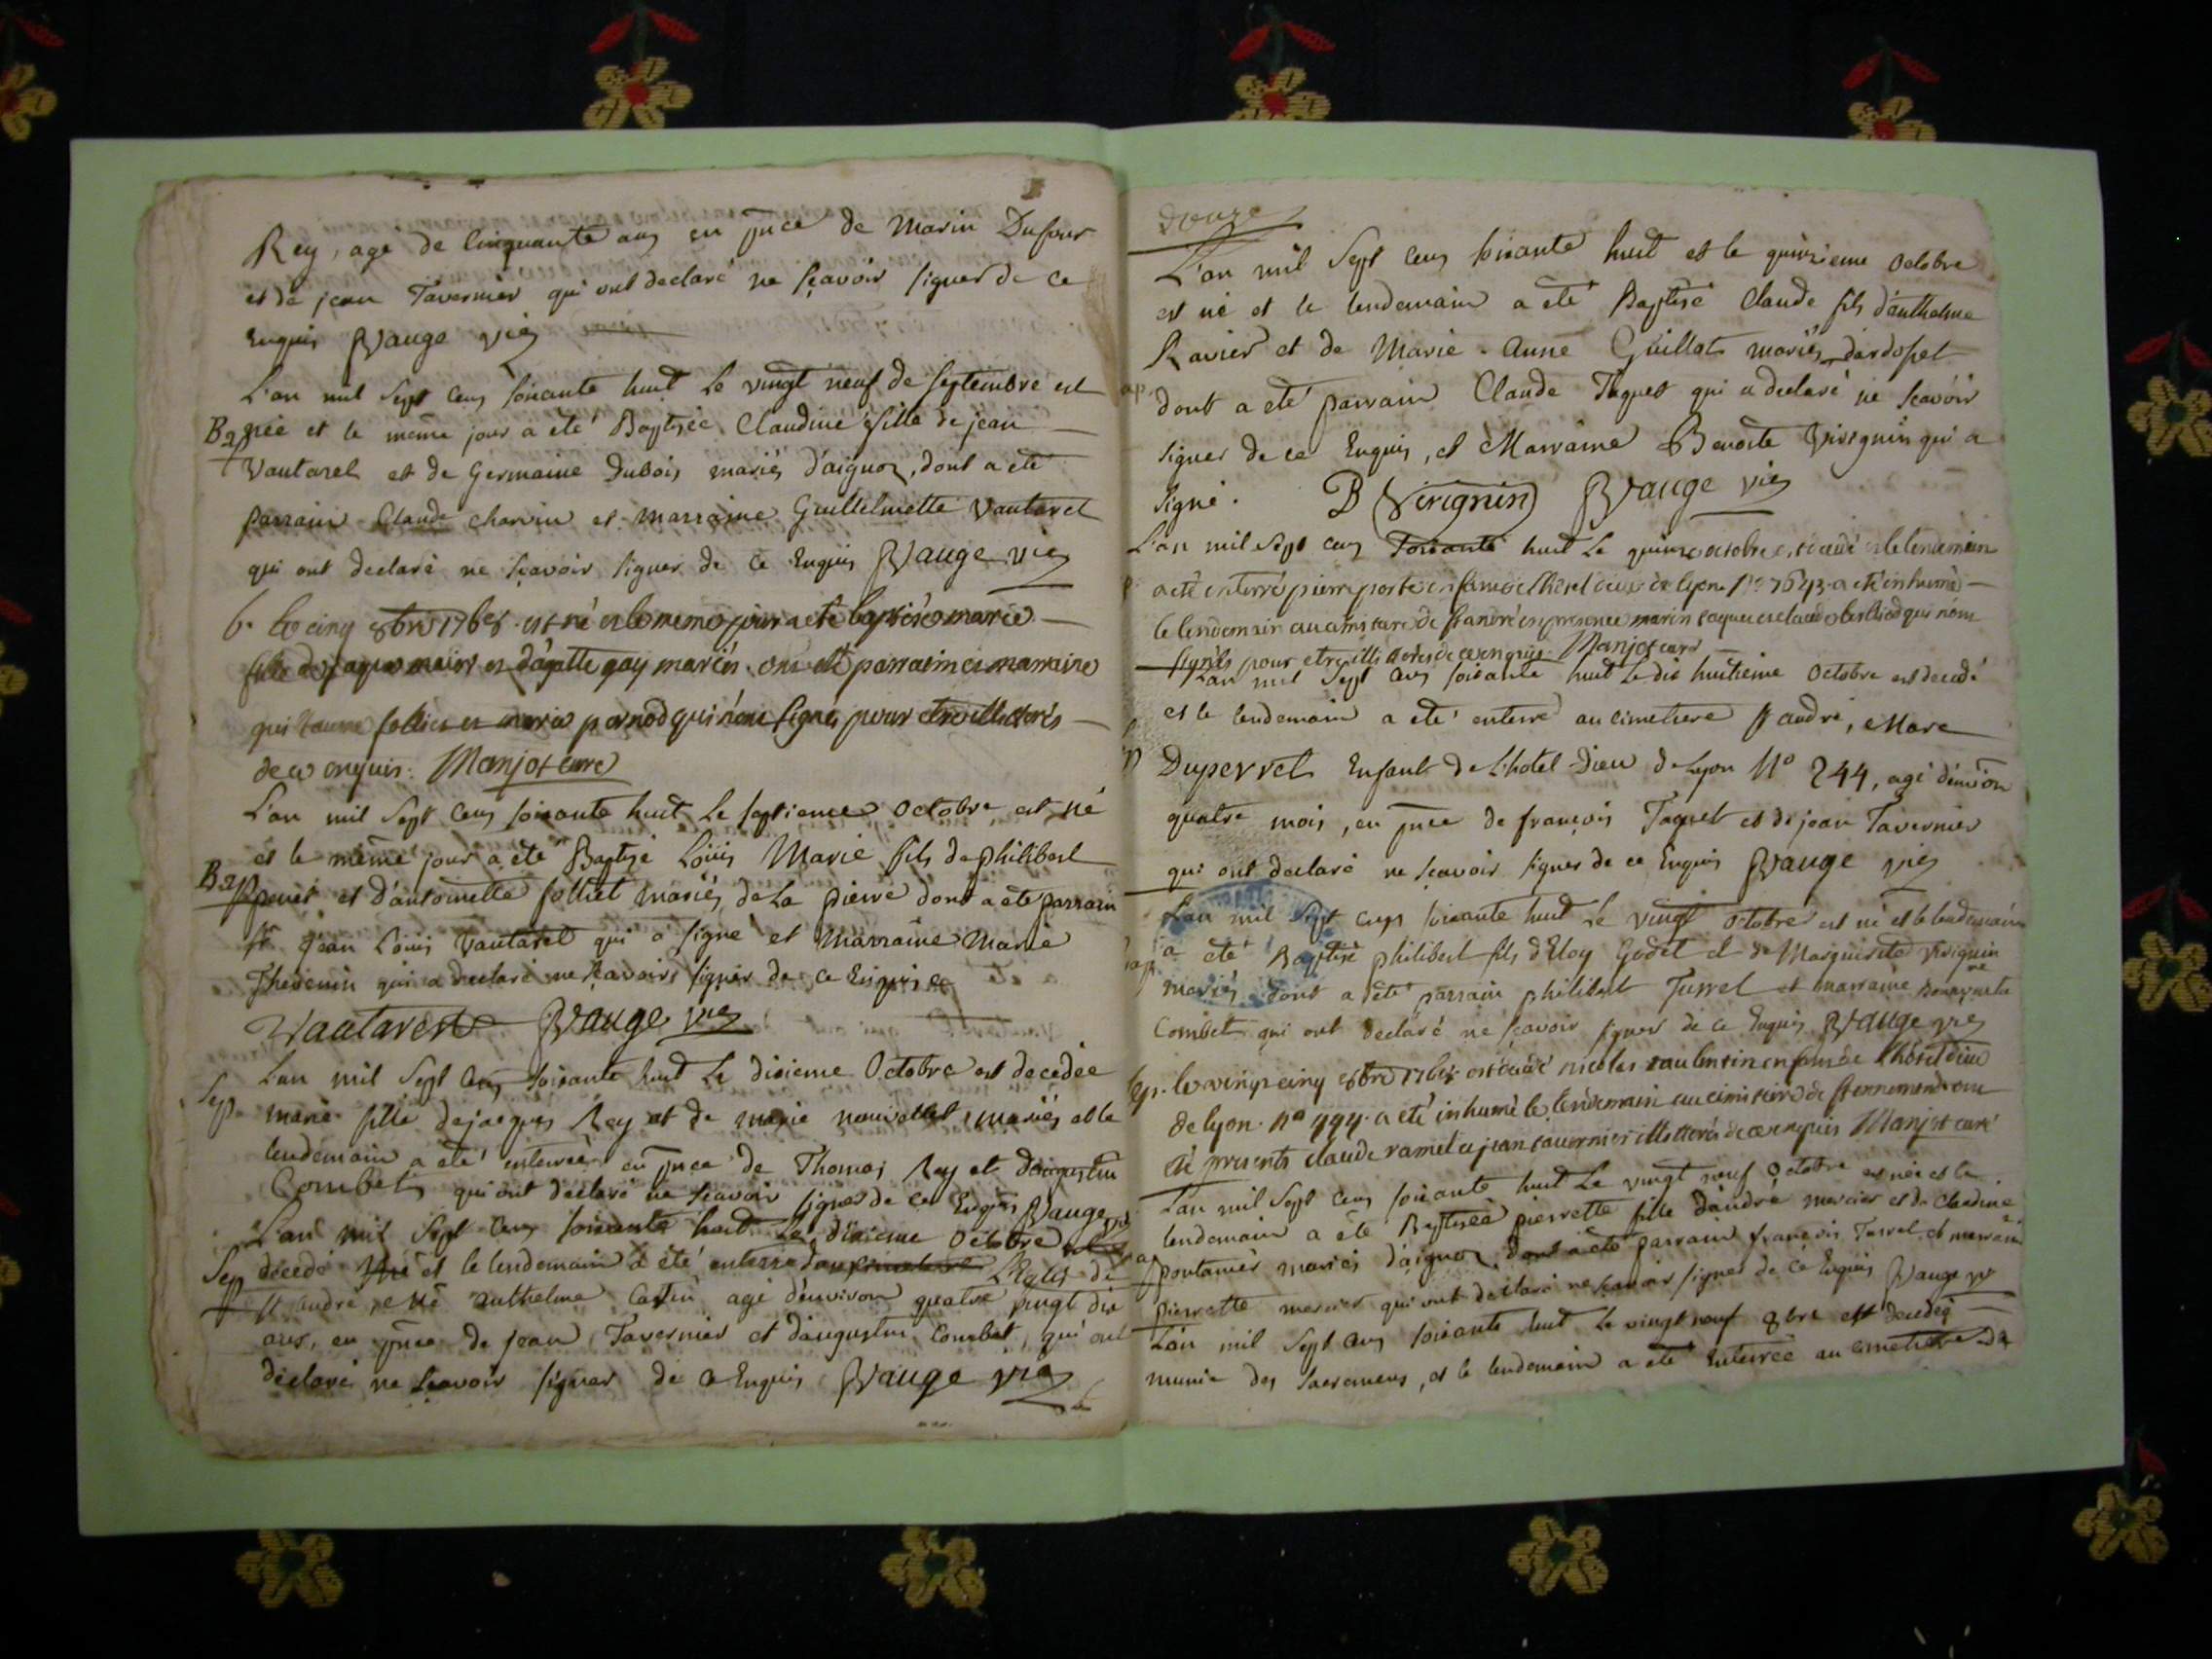 Rey, agé de Cinquante ans en pnce de Marin Dufour
et de jean Tavernier qui ont declaré ne sçavoir signer de ce
Enquis Vauge vic
L'an mil Sept Cens soixante huit Le vingt neuf de septembre est
Bap née et le même jour a été Baptisée Claudine fille de jean
Vautaret et de Germaine Dubois mariés d'aignoz, dont a été
parrain Claude charvin et marraine Guillelmette Vautaret
qui ont declaré ne sçavoir signer de ce Enquis Vauge vic
b. le cinq 8bre 1768 est né et le meme jour a eté baptisé marie
fille de jaque et d'agatte gay mariés ont eté parrain et marraine
qui et marie pernod qui n'ont signés pour etre illitterés
de ce enquis. Manjot curé
L'an mil Sept Cens soixante huit Le septieme Octobre est né
et le même jour a été Baptisé Loüis Marie fils de philibert
Bap et d'antoinette folliet mariés de La pierre dont a été parrain
Sr jean Loüis Vautaret qui a signé et Marraine Marie
Thevenin qui a declaré ne sçavoir signer de ce Enquise
Vautaret Vauge vic
L'an mil Sept Cens soixante huit Le dixieme Octobre est decedée
Sep. marie fille de jacques Rey et de marie nouvellet mariés et le
lendemain a été enterrée en pnce de Thomas Rey et d'augustin
Combet qui ont declaré ne sçavoir signer de ce Enquis Vauge vic
L'an mil Sept Cens soixante huit Le dixieme Octobre est
Sep decedé et le lendemain a été enterré dans L'Eglise de
St andré, Me anthelme Catin agé d'environ quatre vingt dix
ans, en pnce de jean Tavernier et d'augustin Combet, qui ont
declaré ne sçavoir signer de ce Enquis Vauge vic
Douze
L'an mil Sept Cens soixante huit et le quinzieme Octobre
est né et le lendemain a été Baptisé Claude fils d'anthelme
Ravier et de Marie-Anne Guillot mariés d'ardosset
ap. dont a été parrain Claude Taquet qui a declaré ne sçavoir
signer de ce Enquis, et Marraine Benoite Virignin qui a
signé. B Virignin Vauge vic
L'an mil Sept cens soixante huit Le quinze octobre est decedé et le lendemain
a eté enterré pierre porte enfant de l'hotel dieu de Lyon no 7643 a eté inhumé
le lendemain au cimitiere de St andré en presence marin taquet et claude qui n'ont
signés pour etre illitterés de ce enquis Manjot curé
L'an mil Sept Cens soixante huit Le dix huitieme Octobre est decedé
et le lendemain a eté enterré au cimetiere St andré, Marc
Dupeyret Enfant de L'hotel-Dieu de Lyon No 244, agé d'environ
quatre mois, en pnce de françois Taquet et de jean Tavernier
qui ont declaré ne sçavoir signer de ce Enquis Vauge vic
L'an mil Sept Cens soixante huit Le vingt Octobre est né et le lendemain
bap a eté Baptisé philibert fils d'Eloy Godet et de Marguerite Virignin
mariés dont a été parrain philibert Turrel et marraine
Combet qui ont declaré ne sçavoir signer de ce Enquis Vauge vic
sep. le vingt cinq 8bre 1768 est decedé nicolas enfant de l'hôtel dieu
de lyon. no 994. a eté inhumé le lendemain au cimitiere de St andré ont
eté presents claude ramel et jean tavernier illitterés de ce enquis Manjot curé
L'an mil Sept Cens soixante huit Le vingt neuf Octobre est née et le
lendemain a été Baptisée pierrette fille d'andré mercier et de Claudine
bap pontanier mariés d'aignoz, dont a été parrain françois Turrel et marraine
pierrette mercier qui ont declaré ne sçavoir signer de ce Enquis Vauge vic
L'an mil Sept Cens soixante huit Le vingt neuf 8bre est decedée
munie des sacremens, et le lendemain a été Enterrée au cimetiere de